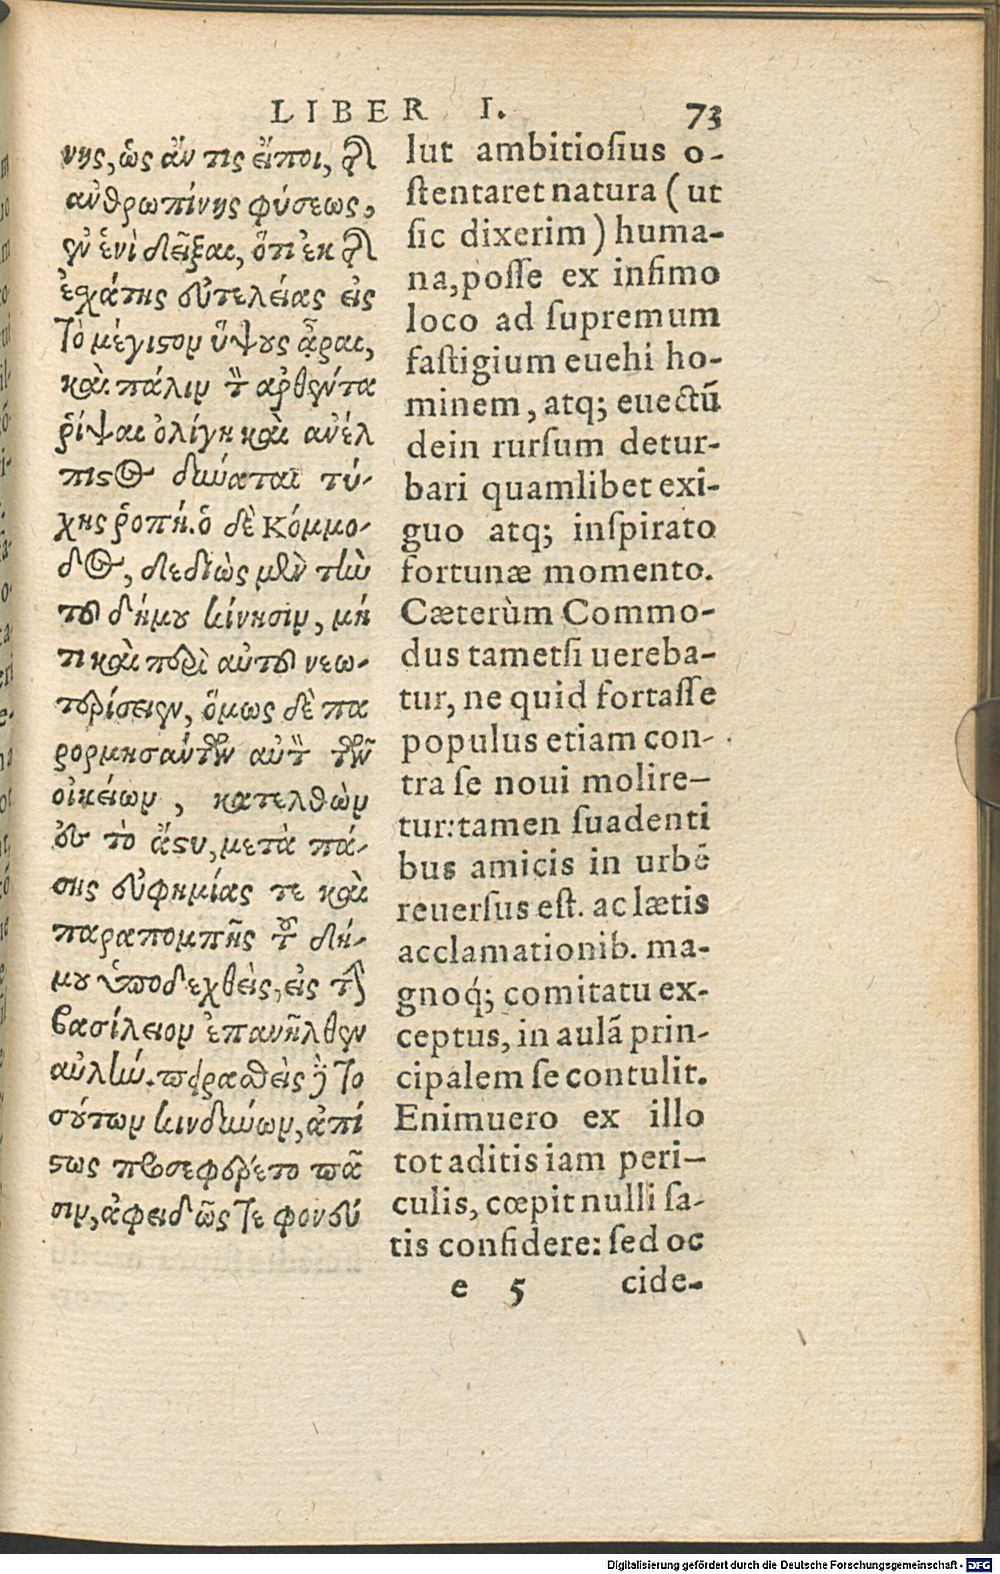 LIBER I. 73
νης, ὡς ἄν τις εἴποι, τῆς
ἀνθρωπίνης φύσεως,
ἐν ἑνὶ δεῖξαι, ὅτι ἐκ τῆς
ἐσχάτης εὐτελείας εἰς
τὸ μέγιστον ὕψους ἆραι,
καὶ πάλιν τὸν ἀρθέντα
ῥίψαι ὀλίγη καὶ ἀνέλ
πιστος δύναται τύ-
χης ῥοπή. ὁ δὲ Κόμμο-
δος, δεδιὼς μὲν τὴν
τοῦ δήμου κίνησιν, μή
τι καὶ περὶ αὐτοῦ νεω-
τερίσειεν, ὅμως δὲ πα
ρορμησάντων αὐτὸν τῶν
οἰκείων, κατελθὼν
εἰς τὸ ἄστυ, μετὰ πά-
σης εὐφημίας τε καὶ
παραπομπῆς τοῦ δή-
μου ὑποδεχθεὶς, εἰς τὴν
βασίλειον ἐπανῆλθεν
αὐλήν. πειραθεὶς δὲ το
σούτων κινδύνων, ἀπί
στως προσεφέρετο πᾶ
σιν, ἀφειδῶς τε φονεύ
lut ambitiosius o-
stentaret natura (ut
sic dixerim) huma-
na, posse ex infimo
loco ad supremum
fastigium euehi ho-
minem, atq; euectū
dein rursum detur-
bari quamlibet exi-
guo atq; inspirato
fortunæ momento.
Cæterùm Commo-
dus tametsi uereba-
tur, ne quid fortasse
populus etiam con-
tra se noui molire-
tur: tamen suadenti
bus amicis in urbē
reuersus est. ac lætis
acclamationib. ma-
gnoq́; comitatu ex-
ceptus, in aulā prin-
cipalem se contulit.
Enimuero ex illo
tot aditis iam peri-
culis, cœpit nulli sa-
tis confidere: sed oc
e 5 cide-
Digitalisierung gefördert durch die Deutsche Forschungsgemeinschaft - DFG